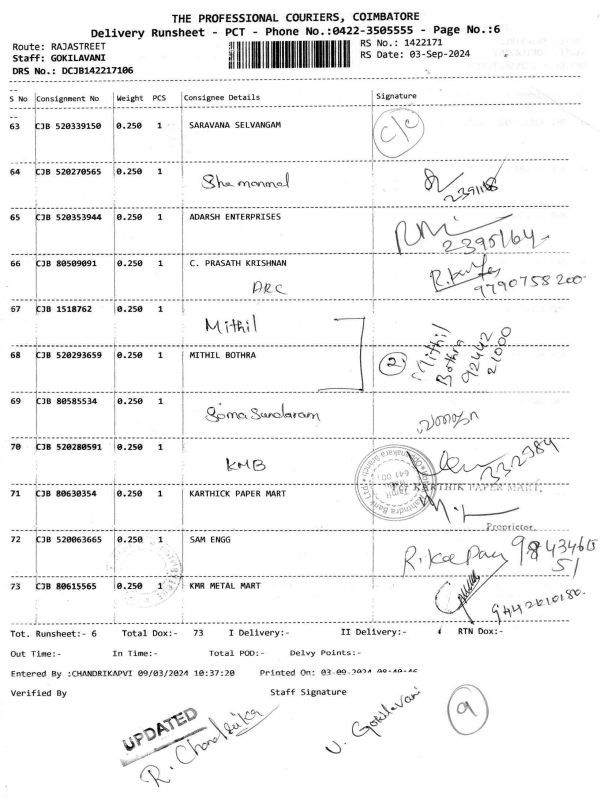 THE PROFESSIONAL COURIERS, COIMBATORE
Delivery Runsheet - PCT - Phone No.:0422-3505555 - Page No.:6
Route: RAJASTREET RS No.: 1422171
Staff: GOKILAVANI RS Date: 03-Sep-2024
DRS No.: DCJB142217106
S No Consignment No Weight PCS Consignee Details Signature
63 CJB 520339150 0.250 1 SARAVANA SELVANGAM C/C
64 CJB 520270565 0.250 1
65 CJB 520353944 0.250 1 ADARSH ENTERPRISES
2395164
66 CJB 80509091 0.250 1 C. PRASATH KRISHNAN
ARC 9790758200
67 CJB 1518762 0.250 1 Mithil
68 CJB 520293659 0.250 1 MITHIL BOTHRA 2 Mithil
Bothra
92442
21000
69 CJB 80585534 0.250 1 SomaSundaram
70 CJB 520280591 0.250 1 KMB 332984
71 CJB 80630354 0.250 1 KARTHICK PAPER MART For KARTHIK PAPER MART,
Proprietor.
72 CJB 520063665 0.250 1 SAM ENGG
73 CJB 80615565 0.250 1 KMR METAL MART
Tot. Runsheet:- 6 Total Dox:- 73 I Delivery:- II Delivery:- RTN Dox:-
Out Time:- In Time:- Total POD:- Delvy Points:-
Entered By :CHANDRIKAPVI 09/03/2024 10:37:20 Printed On: 03-09-2024
Verified By Staff Signature
UPDATED
R. Chandrika
V. Gokilavani
9